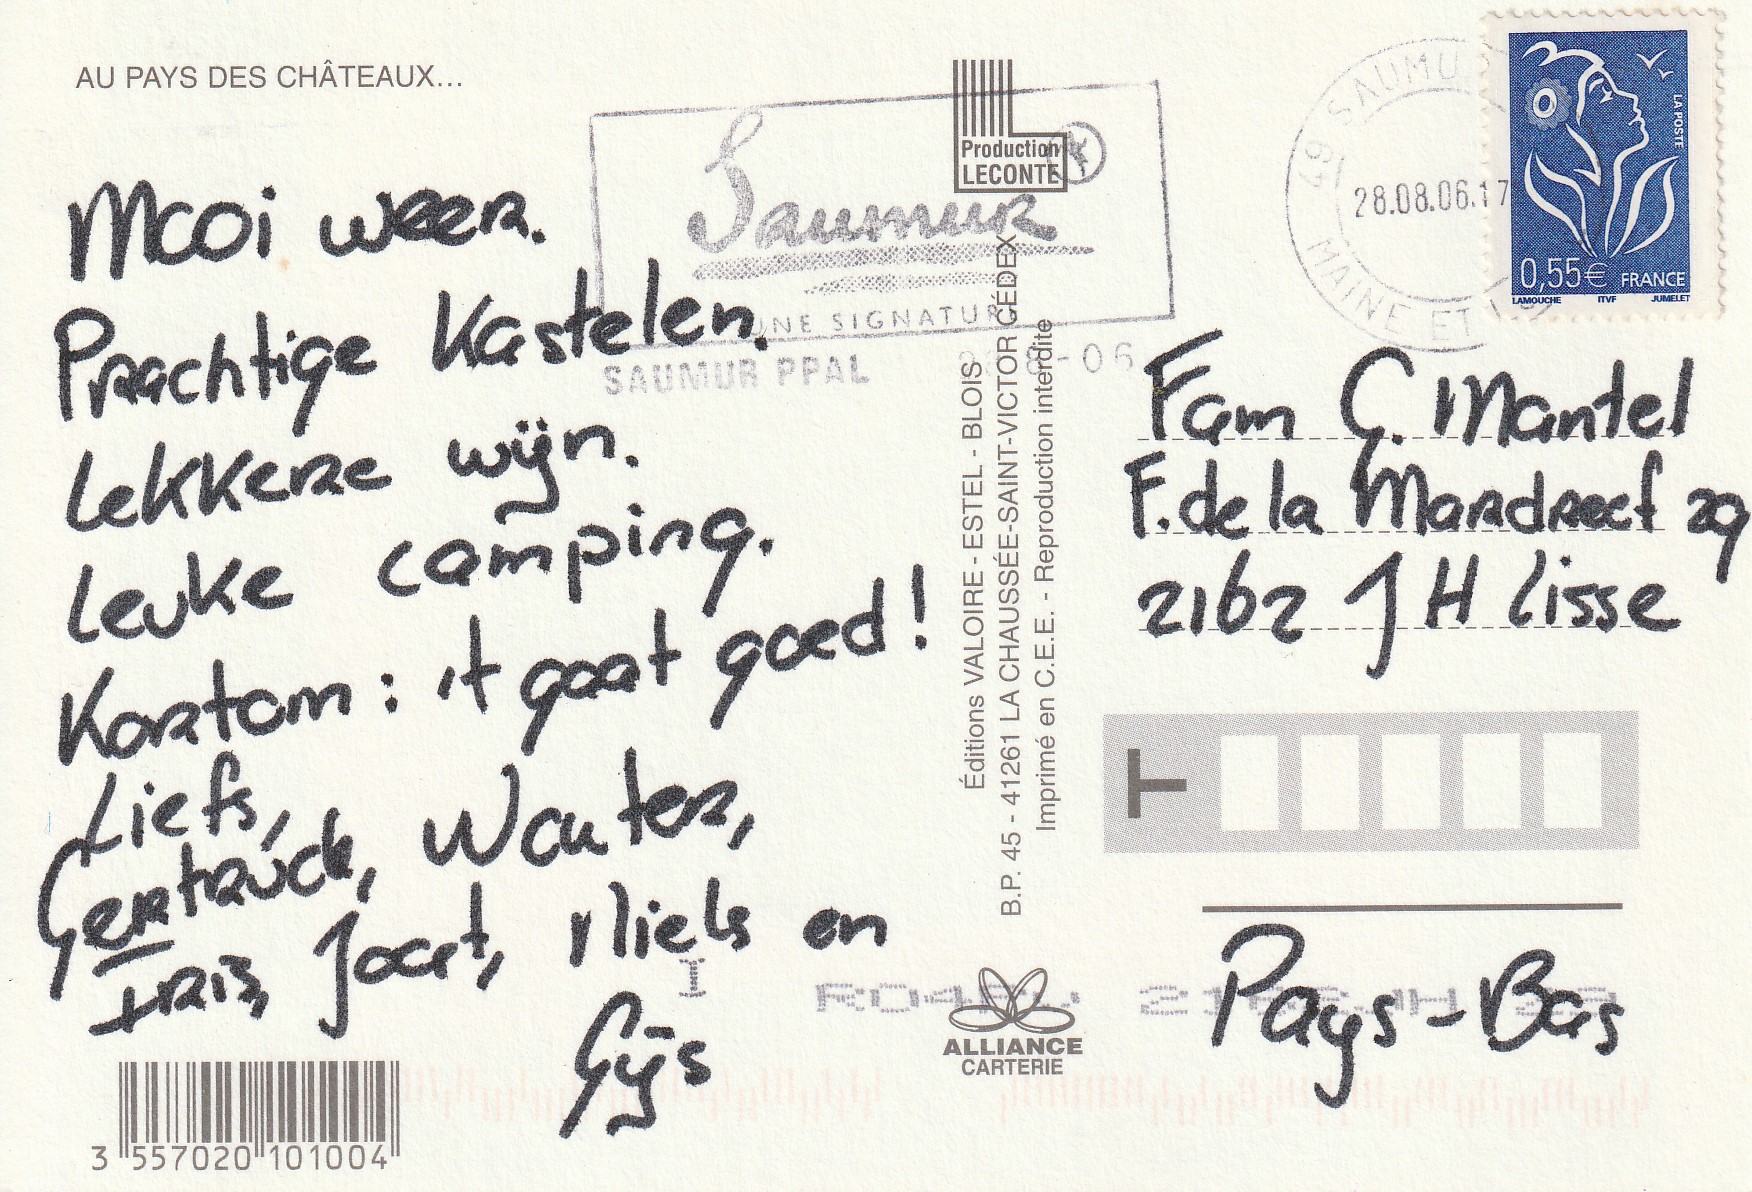 AU PAYS DES CHÂTEAUX...
Mooi weer.
Prachtige Kastelen.
Lekkere wijn.
Leuke camping.
Kortom: 't gaat goed!
Liefs,
Gertruck, Wouter,
Iris, Joost, Niels en
Gijs
3 557020 101004
Production
LECONTE
Saumur
UNE SIGNATURE
SAUMUR PPAL 28-8-06
Éditions VALOIRE - ESTEL - BLOIS
B.P. 45 - 41261 LA CHAUSSÉE-SAINT-VICTOR CÉDEX
Imprimé en C.E.E. - Reproduction interdite
ALLIANCE
CARTERIE
49 SAUMUR
28.08.06.17
MAINE ET
LA POSTE
0,55€ FRANCE
LAMOUCHE ITVF JUMELET
Fam G. Mantel
F. de la Mardreef 29
2162 JH Lisse
T
Pays-Bas